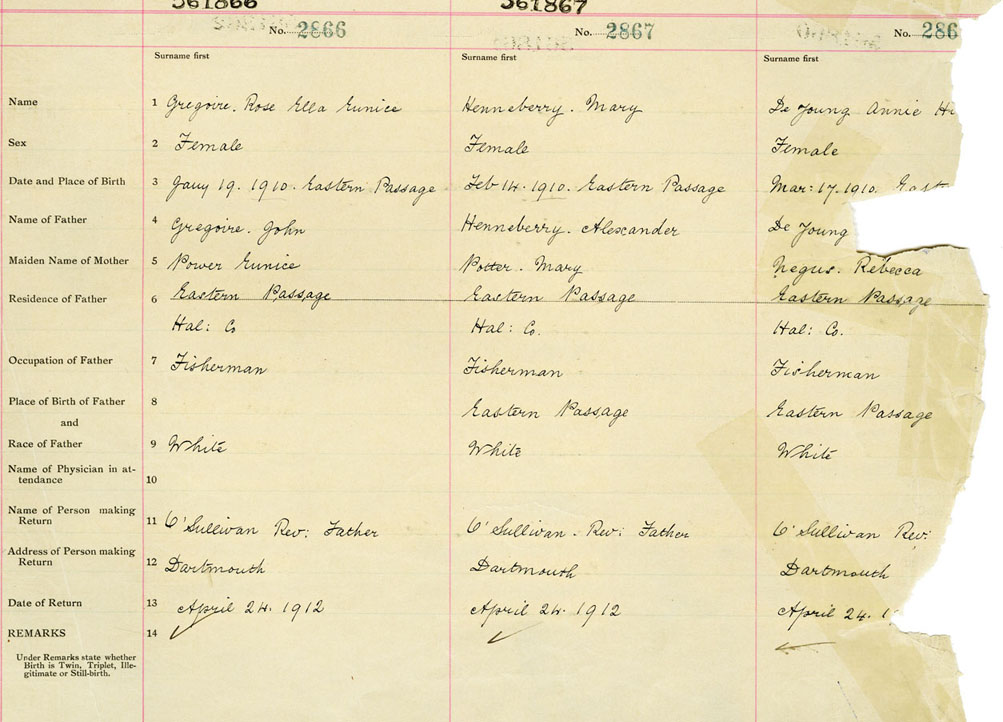 561866 561867
No. 2866 No. 2867 No. 286
Surname first Surname first Surname first
Name 1 Gregoire. Rose Ella Eunice Henneberry. Mary De Young Annie
Sex 2 Female Female Female
Date and Place of Birth 3 Jany 19. 1910. Eastern Passage Feb 14. 1910. Eastern Passage Mar: 17. 1910. East
Name of Father 4 Gregoire. John Henneberry. Alexander De Young
Maiden Name of Mother 5 Power Eunice Potter. Mary Negus. Rebecca
Residence of Father 6 Eastern Passage Eastern Passage Eastern Passage
Hal: Co Hal: Co. Hal: Co.
Occupation of Father 7 Fisherman Fisherman Fisherman
Place of Birth of Father 8 Eastern Passage Eastern Passage
and
Race of Father 9 White White White
Name of Physician in at-
tendance 10
Name of Person making
Return 11 O'Sullivan Rev: Father O'Sullivan. Rev: Father O'Sullivan Rev:
Address of Person making
Return 12 Dartmouth Dartmouth Dartmouth
Date of Return 13 April 24. 1912 April 24. 1912 April 24. 1
REMARKS 14
Under Remarks state whether
Birth is Twin, Triplet, Ille-
gitimate or Still-birth.